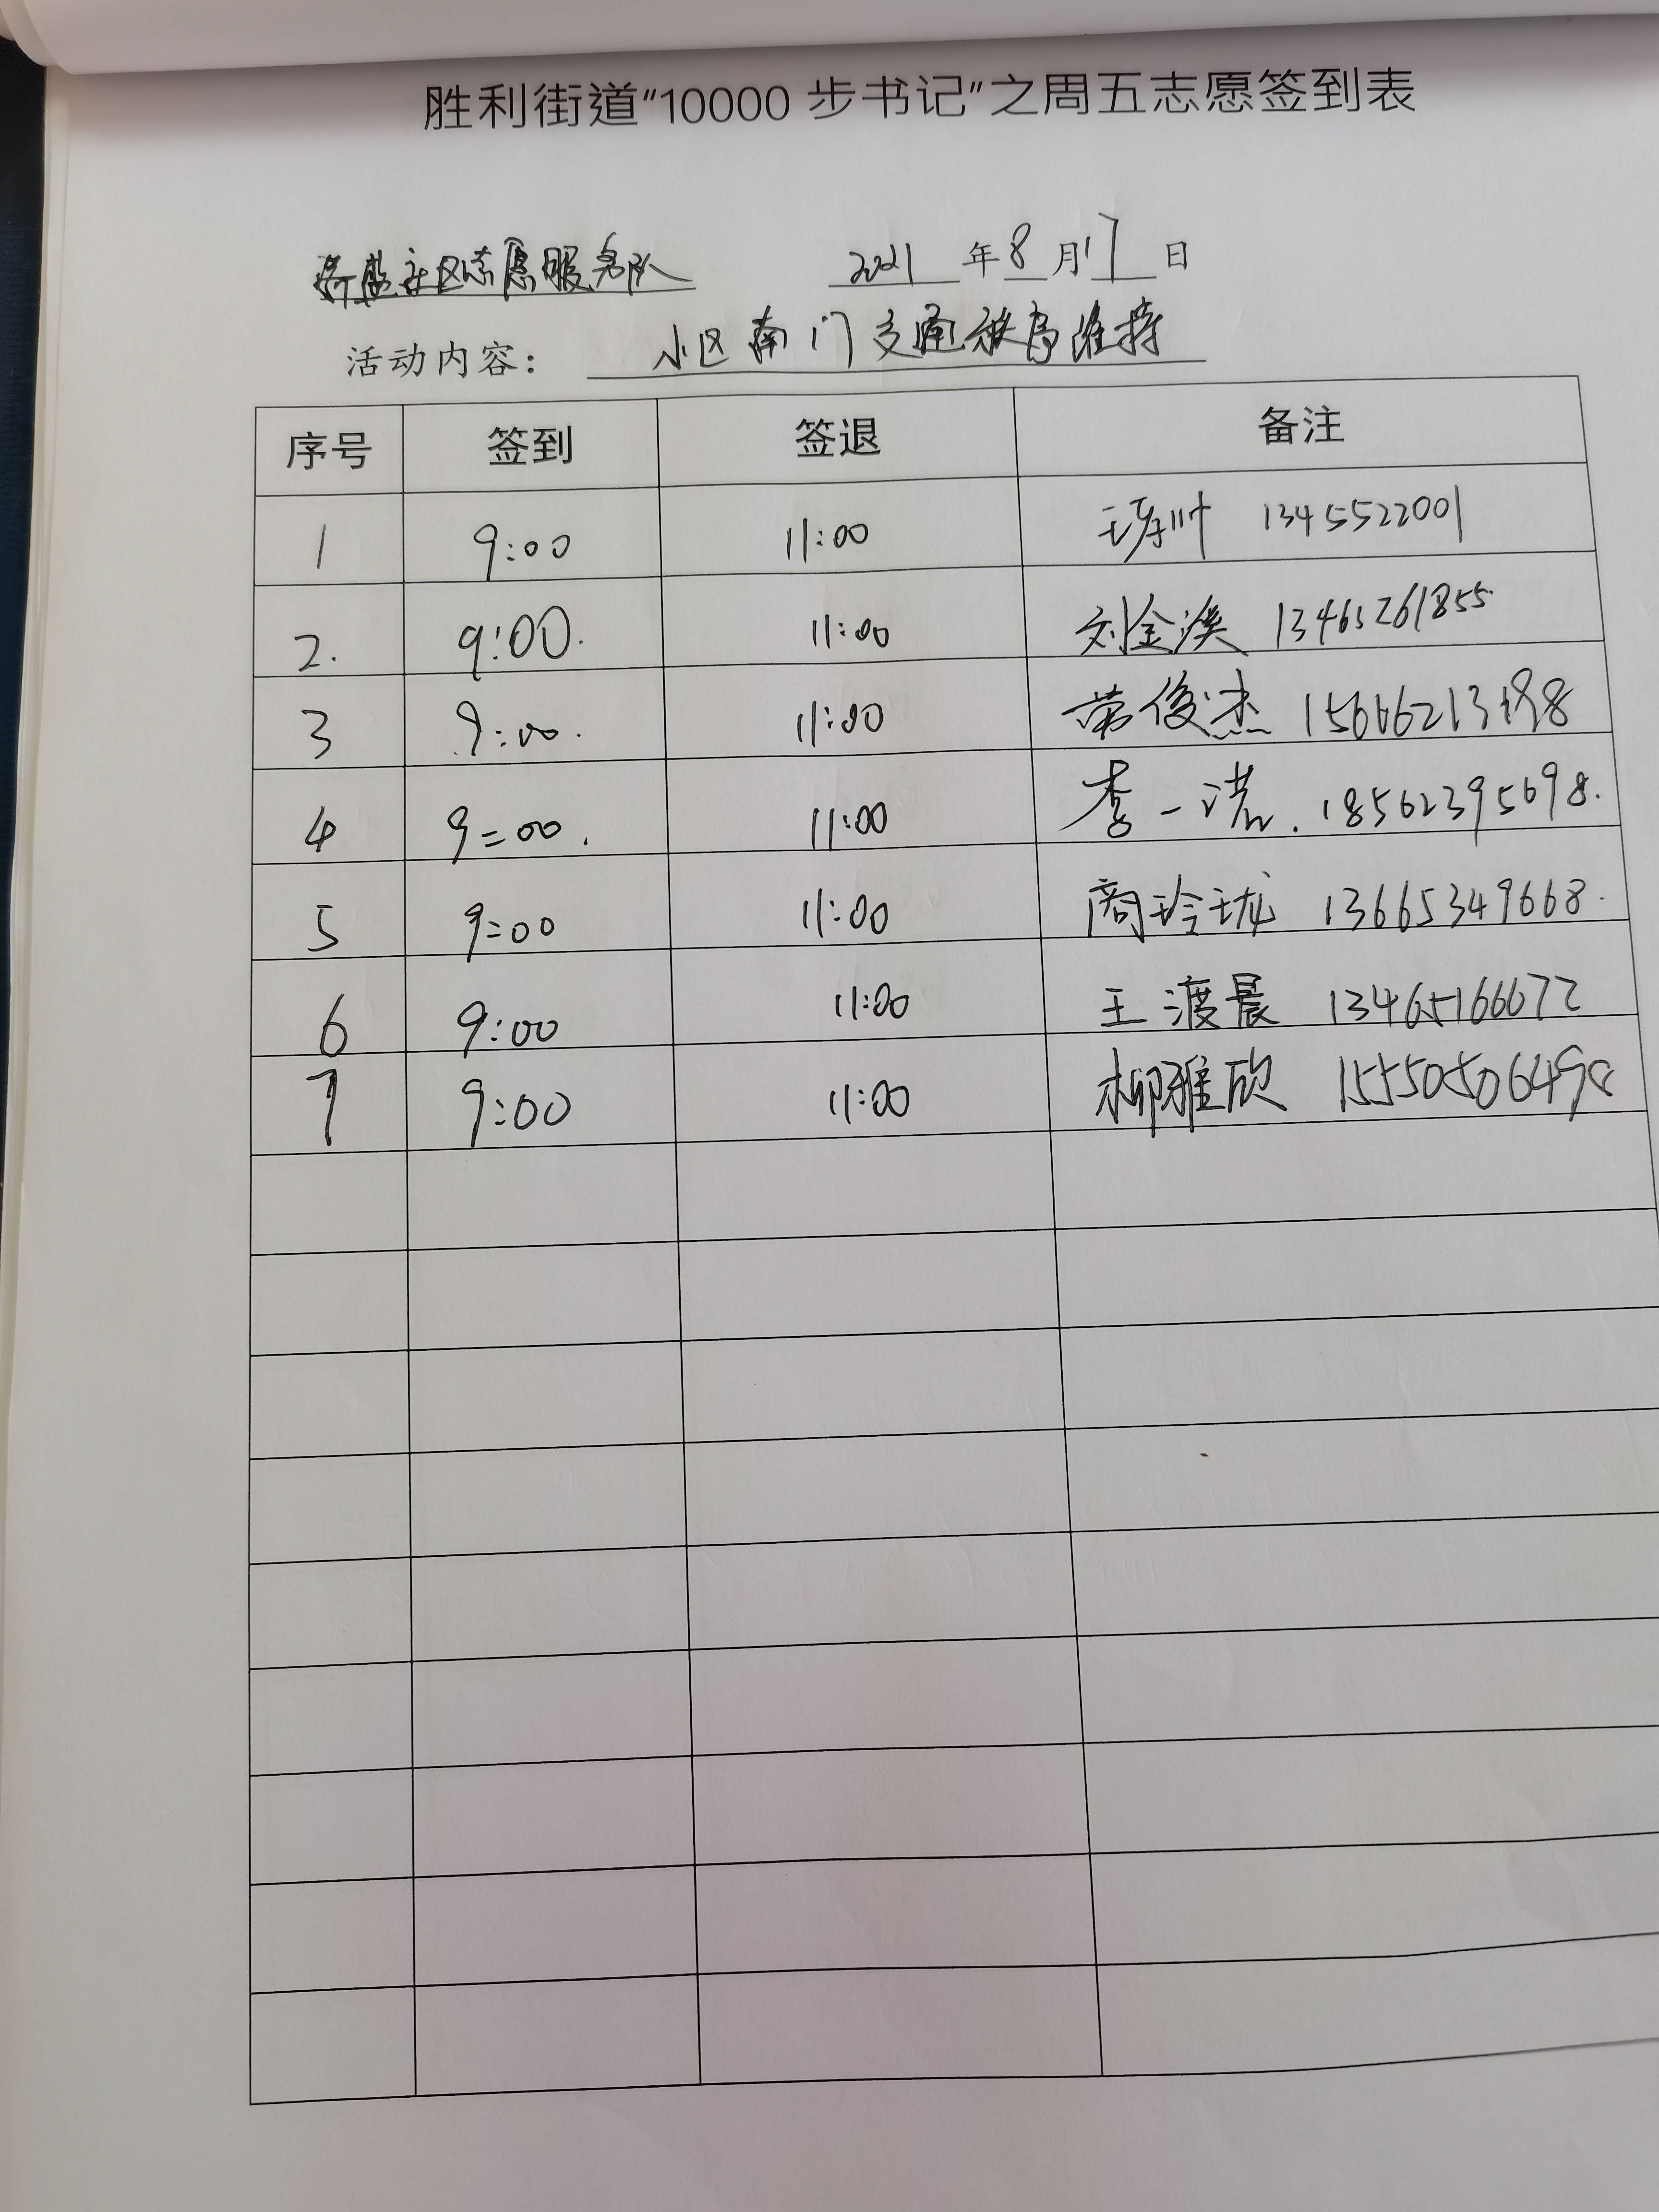 胜利街道“10000步书记”之周五志愿签到表
社区志愿服务队 2021年8月17日
活动内容： 小区南门交通秩序维持
序号 签到 签退 备注
1 9:00 11:00 1345522001
2. 9:00. 11:00 刘金溪 13465261855
3 9:00. 11:00 荣俊杰
4 9:00. 11:00 李一诺. 18562395698.
5 9:00 11:00 商玲珑 13665349668.
6 9:00 11:00 王渡晨 13465166672
7 9:00 11:00 柳雅欣 15550506498